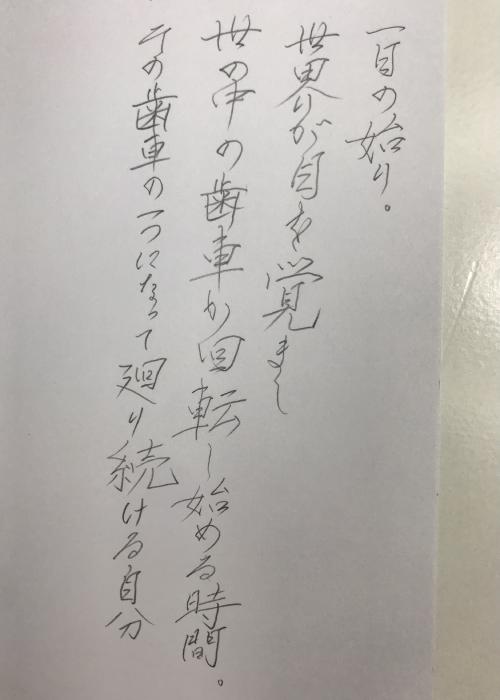 一日の始り。
世界が目を覚まし
世の中の歯車が回転し始める時間。
その歯車の一つになって廻り続ける自分